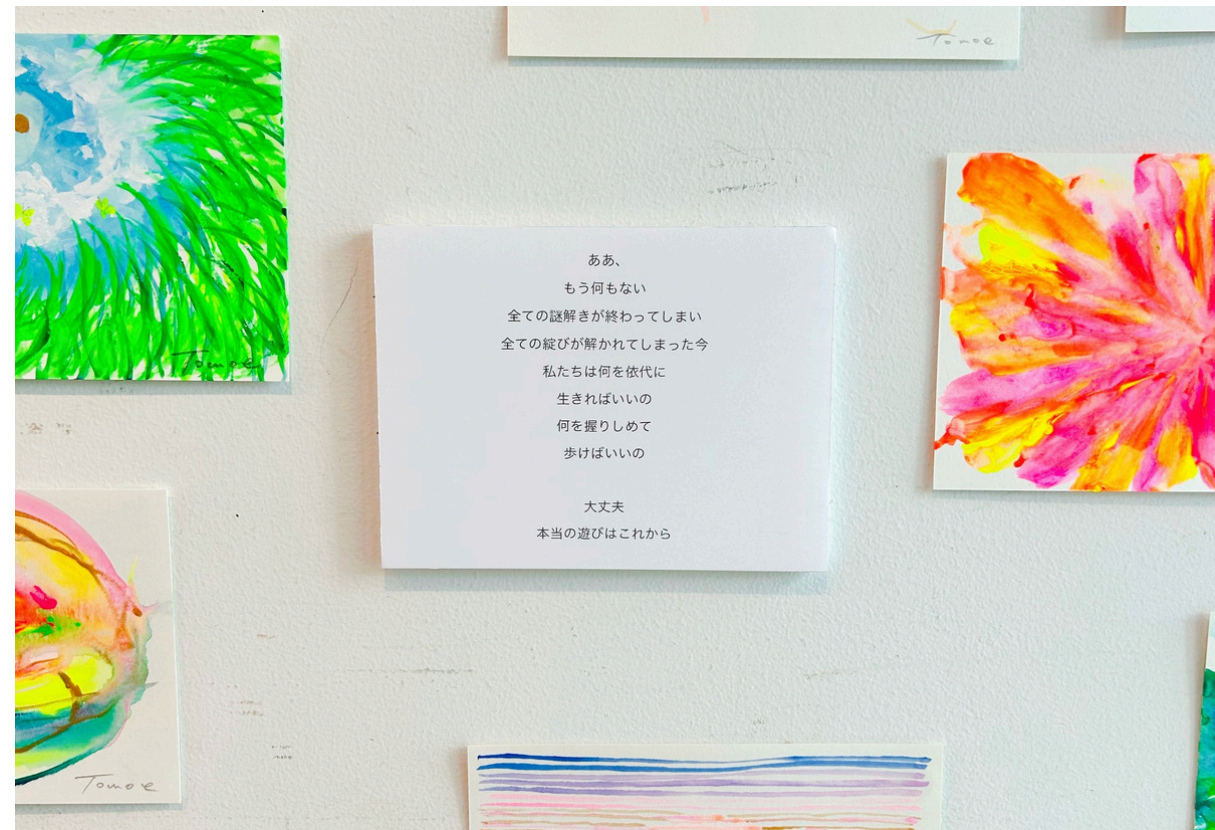 Tomoe
ああ、
もう何もない
全ての謎解きが終わってしまい
全ての綻びが解かれてしまった今
私たちは何を依代に
生きればいいの
何を握りしめて
歩けばいいの
大丈夫
本当の遊びはこれから
Tomoe
Tomoe